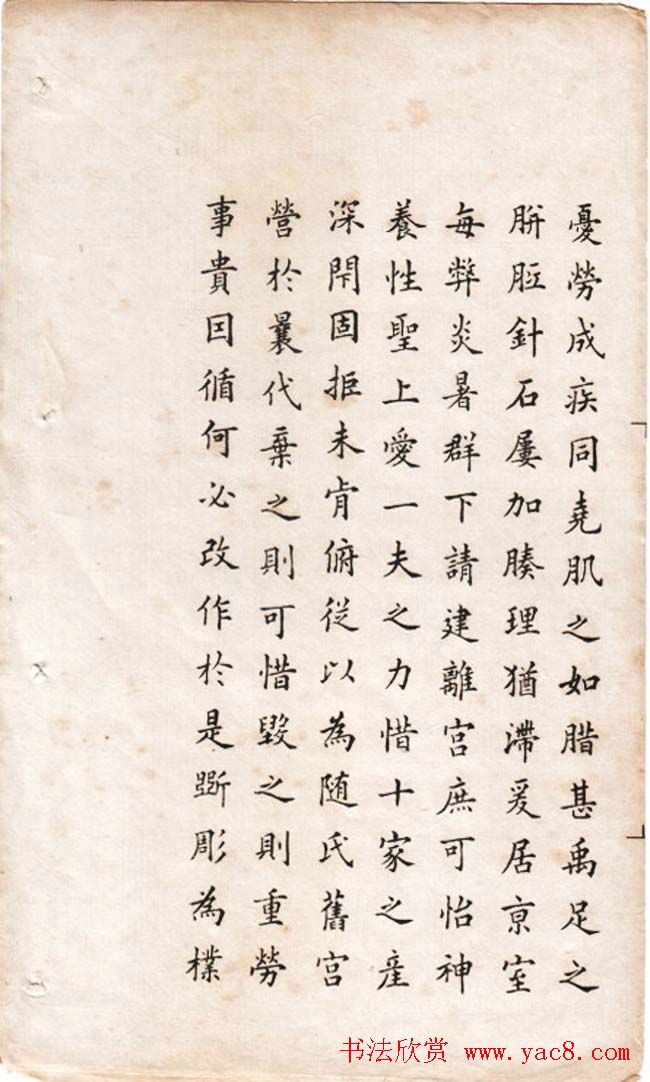 憂勞成疾同堯肌之如腊甚禹足之
胼胝針石屢加腠理猶滯爰居京室
每弊炎暑群下請建離宮庶可怡神
養性聖上愛一夫之力惜十家之產
深閇固拒未肯俯從以為随氏舊宮
營於曩代棄之則可惜毀之則重勞
事貴因循何必改作於是斲彫為樸
书法欣赏 www.yac8.com